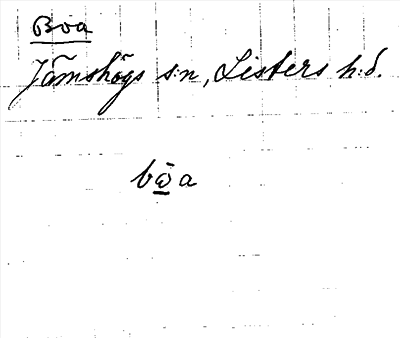 Boa
Jämshögs s:n, Listers h:d.
bω̲̄a